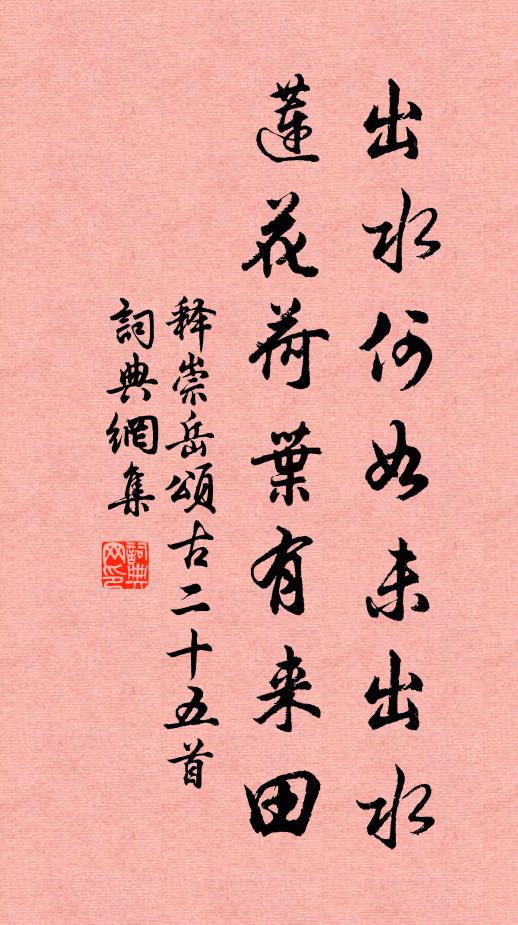 出水何如未出水
蓮花荷葉有来田
释崇岳頌古二十五首
詞典網集
詞典網印